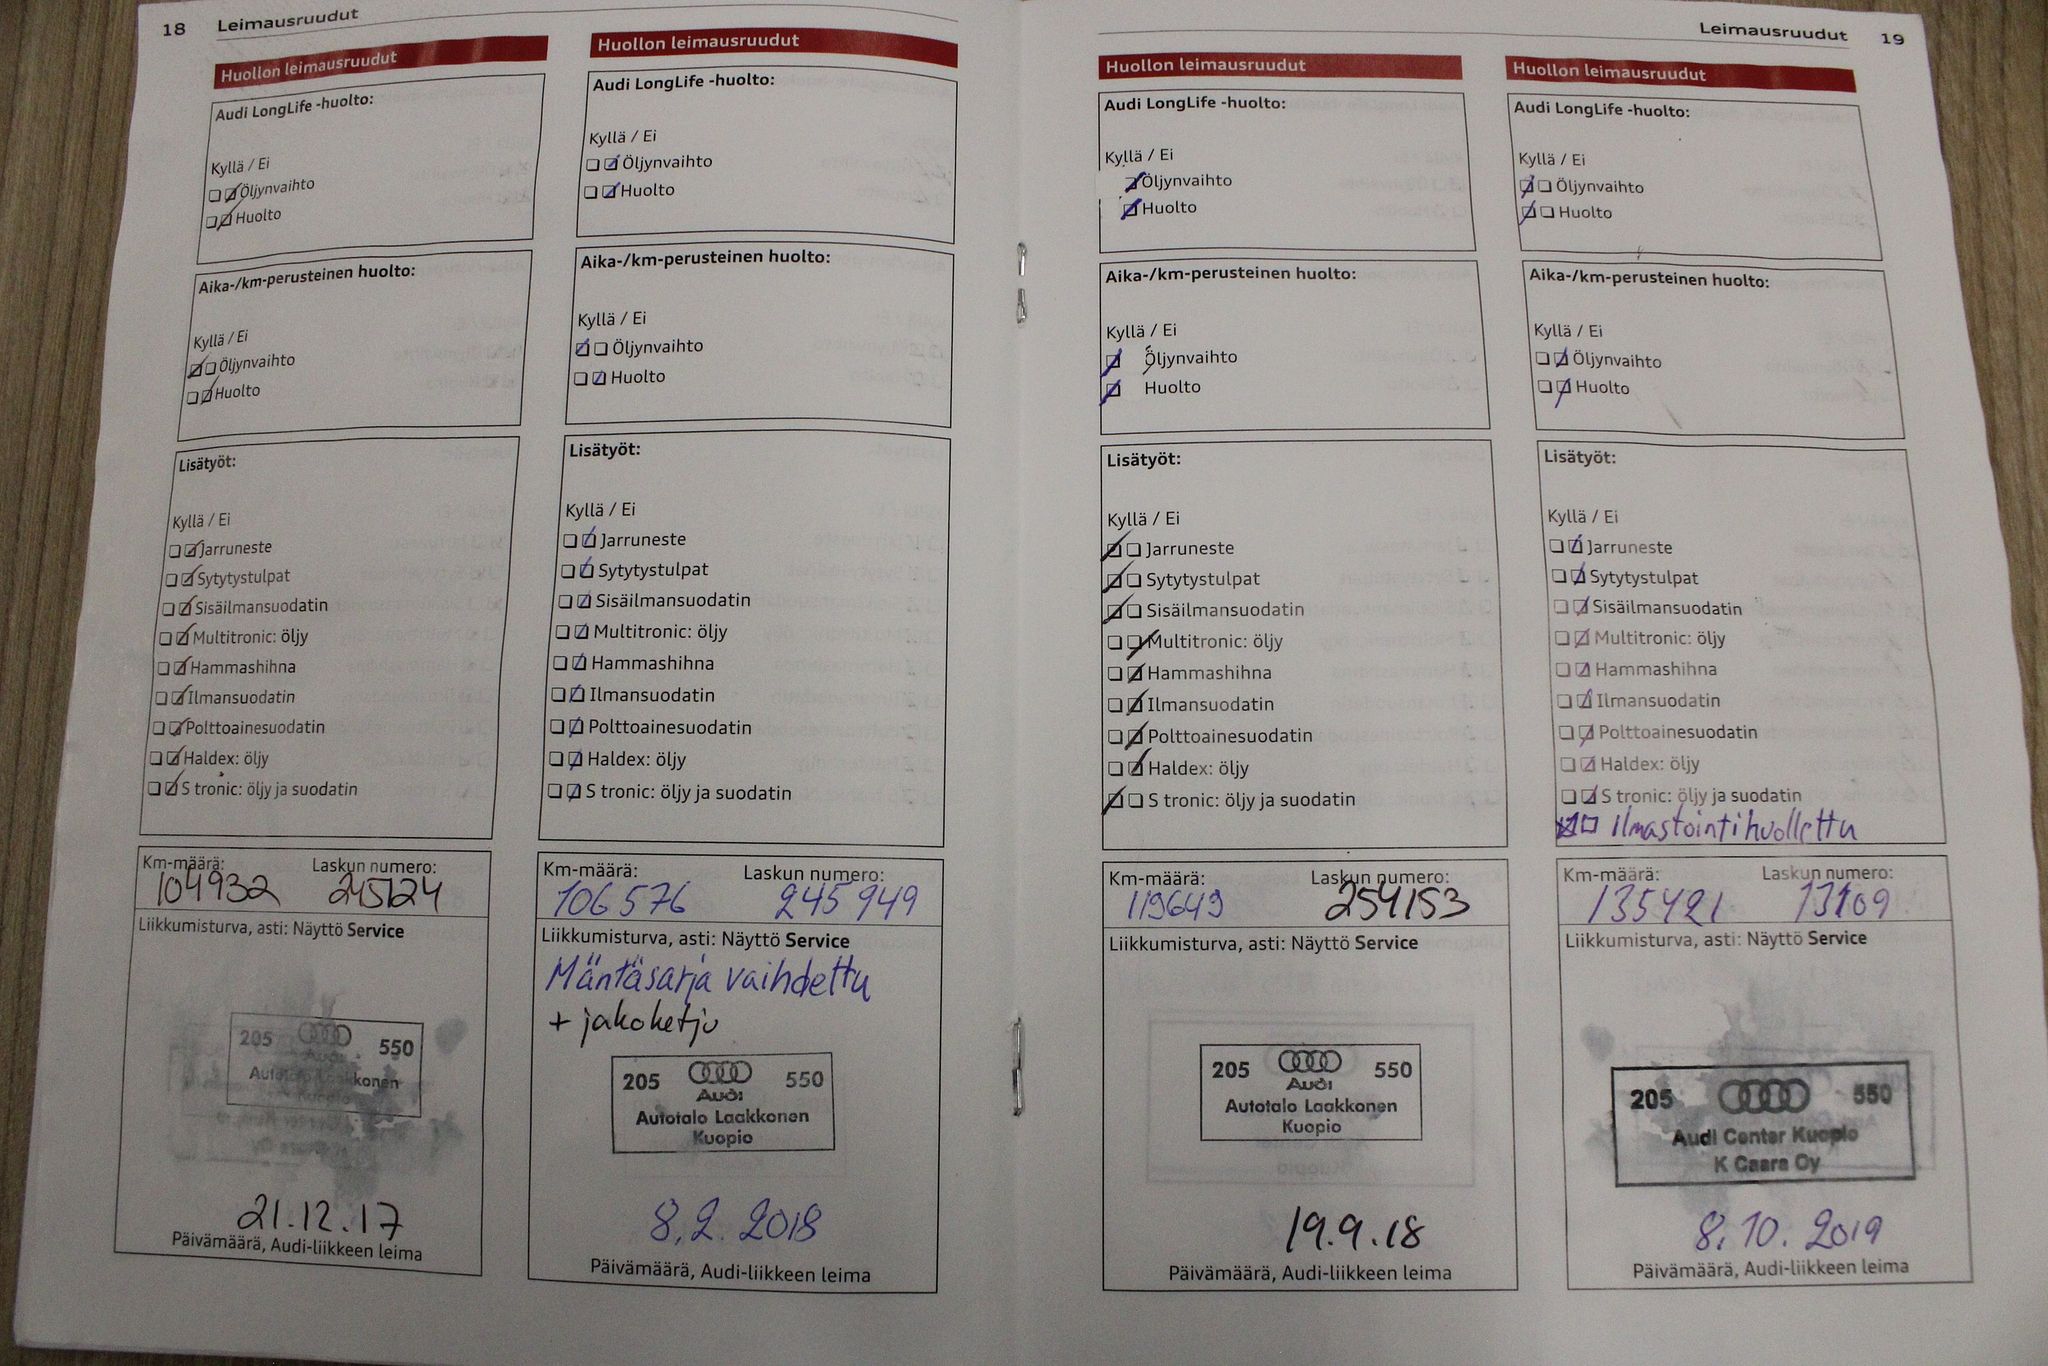 18 Leimausruudut
Huollon leimausruudut
Audi LongLife -huolto:
Kyllä / Ei
Öljynvaihto
Huolto
Aika-/km-perusteinen huolto:
Kyllä / Ei
Öljynvaihto
Huolto
Lisätyöt:
Kyllä / Ei
Jarruneste
Sytytystulpat
Sisäilmansuodatin
Multitronic: öljy
Hammashihna
Ilmansuodatin
Polttoainesuodatin
Haldex: öljy
S tronic: öljy ja suodatin
Km-määrä: Laskun numero:
104932 245124
Liikkumisturva, asti: Näyttö Service
205 550
Audi
Autotalo Laakkonen
Kuopio
21.12.17
Päivämäärä, Audi-liikkeen leima
Huollon leimausruudut
Audi LongLife -huolto:
Kyllä / Ei
Öljynvaihto
Huolto
Aika-/km-perusteinen huolto:
Kyllä / Ei
Öljynvaihto
Huolto
Lisätyöt:
Kyllä / Ei
Jarruneste
Sytytystulpat
Sisäilmansuodatin
Multitronic: öljy
Hammashihna
Ilmansuodatin
Polttoainesuodatin
Haldex: öljy
S tronic: öljy ja suodatin
Km-määrä: Laskun numero:
106 576 245 949
Liikkumisturva, asti: Näyttö Service
Mäntäsarja vaihdettu
+ jakoketju
205 550
Audi
Autotalo Laakkonen
Kuopio
8.2.2018
Päivämäärä, Audi-liikkeen leima
Leimausruudut 19
Huollon leimausruudut
Audi LongLife -huolto:
Kyllä / Ei
Öljynvaihto
Huolto
Aika-/km-perusteinen huolto:
Kyllä / Ei
Öljynvaihto
Huolto
Lisätyöt:
Kyllä / Ei
Jarruneste
Sytytystulpat
Sisäilmansuodatin
Multitronic: öljy
Hammashihna
Ilmansuodatin
Polttoainesuodatin
Haldex: öljy
S tronic: öljy ja suodatin
Km-määrä: Laskun numero:
119649 254153
Liikkumisturva, asti: Näyttö Service
205 550
Audi
Autotalo Laakkonen
Kuopio
19.9.18
Päivämäärä, Audi-liikkeen leima
Huollon leimausruudut
Audi LongLife -huolto:
Kyllä / Ei
Öljynvaihto
Huolto
Aika-/km-perusteinen huolto:
Kyllä / Ei
Öljynvaihto
Huolto
Lisätyöt:
Kyllä / Ei
Jarruneste
Sytytystulpat
Sisäilmansuodatin
Multitronic: öljy
Hammashihna
Ilmansuodatin
Polttoainesuodatin
Haldex: öljy
S tronic: öljy ja suodatin
Ilmastointi huollettu
Km-määrä: Laskun numero:
135421 13109
Liikkumisturva, asti: Näyttö Service
205 550
Audi Center Kuopio
K Caara Oy
8.10.2019
Päivämäärä, Audi-liikkeen leima